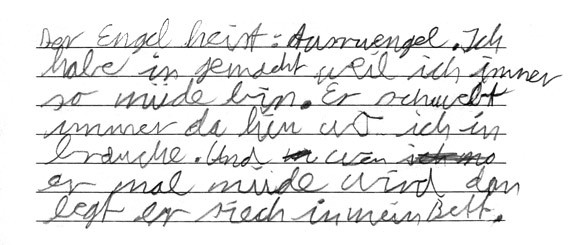 Der Engel heist: Ausruengel. Ich
habe in gemacht weil ich immer
so müde bin. Er schwebt
immer da hin wo ich in
brauche. Und wen
er mal müde wird dan
legt er siech in mein Bett.